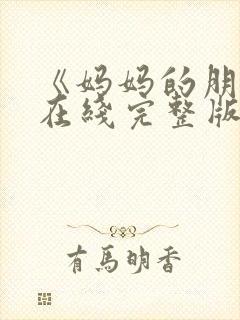 《妈妈的朋
在綫完整版
有馬明香